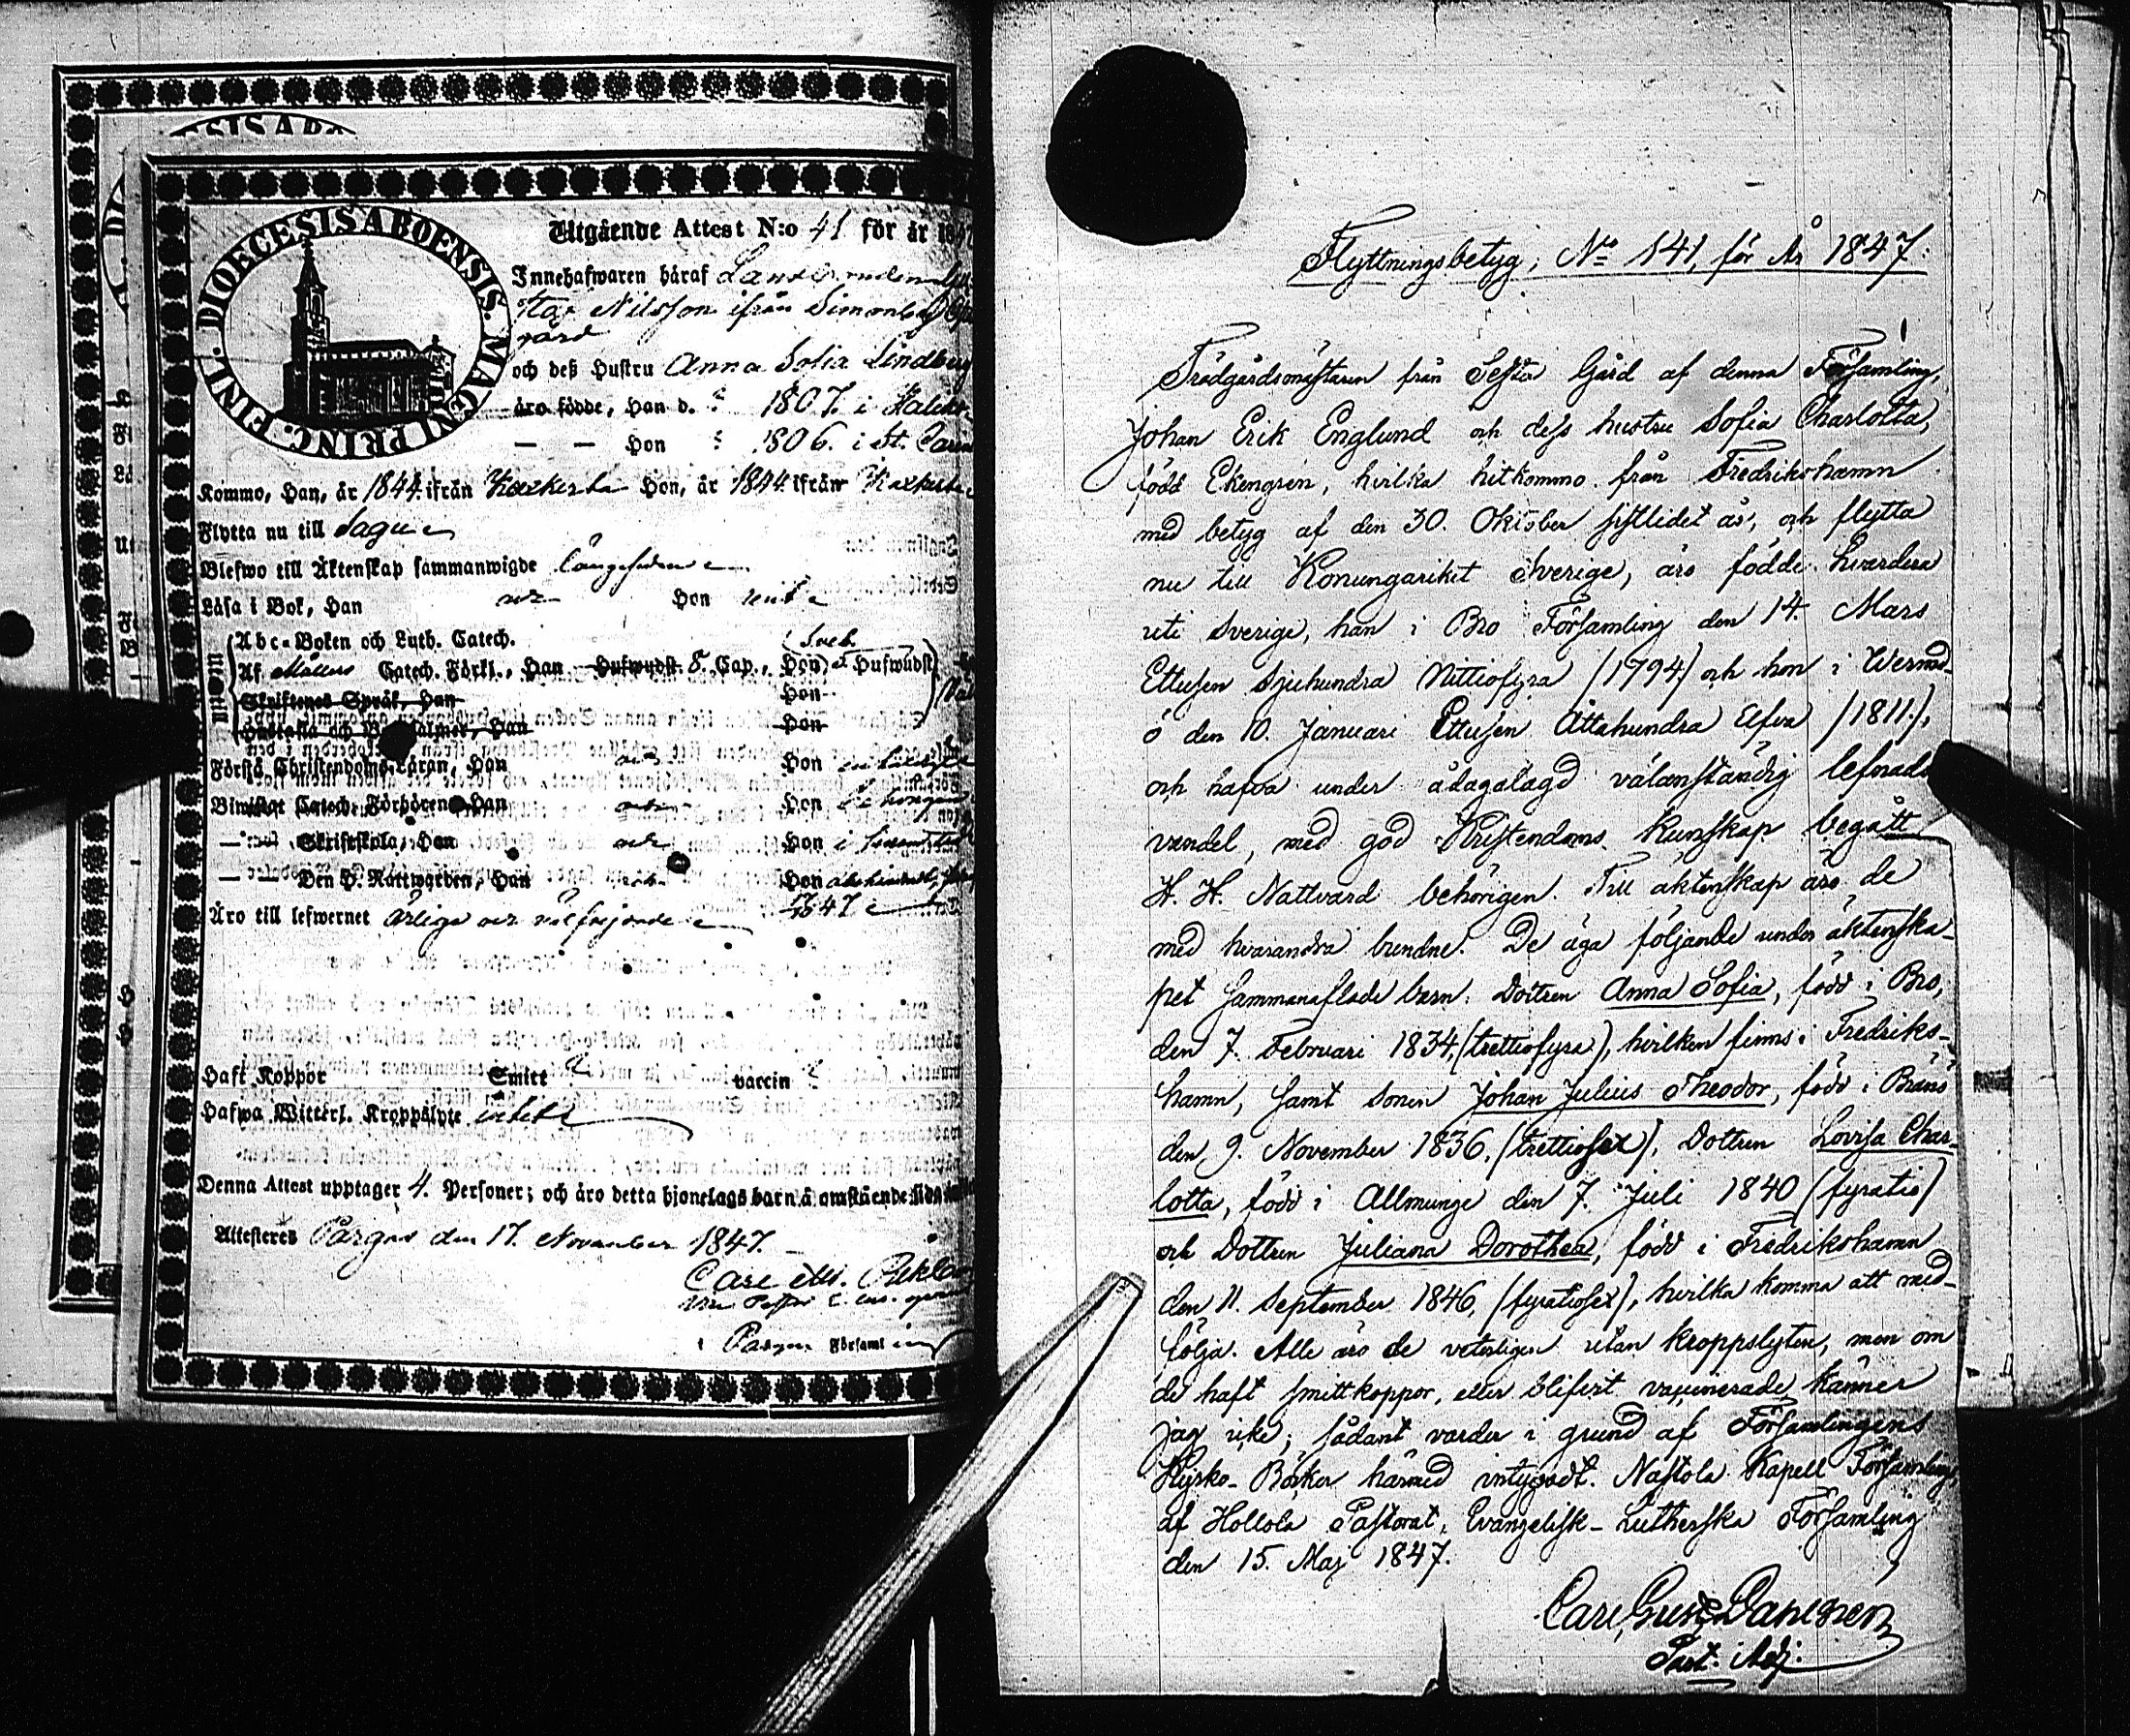 DIOECESIS ABOENSIS. MAGNI PRINC. FINL.
Utgående Attest N:o 41 för år
Innehafwaren häraf
Nilsson ifrån Simonby
gård
och deß Hustru Anna Sofia Lindberg
äro födde, Han d. 1807. i
— — Hon 1806. i St.
Kommo, Han, år 1844 ifrån Kakskerta Hon, år 1844 ifrån
Flytta nu till Sagu
Blefwo till Äktenskap sammanwigde längesedan
Läsa i Bok, Han Hon
Abc-Boken och Luth. Catech. Sveb.
Af Möllers Catech. Förkl., Han Hufwudst. 8. Cap., Hon, Hufwudst
Skriftenes Språk, Han Hon
Hustafla och Han Hon
Förstå Christendoms Läran, Han Hon
Biwistat Catech. Förhören Han Hon
Skriftskola, Han Hon i
— — Den H. Nattwarden, Han Hon
Äro till lefwernet ärliga och välfrejdade 1847
Haft Koppor Smitt vaccin
Hafwa Witterl. Kroppslyte intet
Denna Attest upptager 4. Personer; och äro detta hjonelags barn å omstående sida
Attesteres Pargas den 17. November 1847.
Carl
i Pargas Församling
Flyttningsbetyg, No 141, för År 1847:
Trädgårdsmästaren från Sesta Gård af denna Församling,
Johan Erik Englund och dess hustru Sofia Charlotta,
född Ekengren, hvilka hitkommo från Fredrikshamn
med betyg af den 30. Oktober sistlidet år, och flytta
nu till Konungariket Sverige, äro födde hvardera
uti Sverige, han i Bro Församling den 14. Mars
Ettusen Sjuhundra Nittiofyra (1794) och hon i Wermd-
ö den 10. Januari Ettusen Åttahundra Elfva (1811.),
och hafva under ådagalagd välanständig lefnads
vandel, med god Kristendoms kunskap begått
H. H. Nattvard behörigen. Till äktenskap äro de
med hvarandra bundne. De äga följande under äktenska-
pet sammanaflade barn: Dottren Anna Sofia, född i Bro,
den 7. Februari 1834, (trettiofyra), hvilken finns i Fredriks-
hamn, samt sonen Johan Julius Theodor, född i Bränö
den 9. November 1836, (trettiosex), Dottren Lovisa Char-
lotta, född i Allmunge den 7. Juli 1840 (fyratio)
och Dottren Juliana Dorothea, född i Fredrikshamn
den 11. September 1846, (fyratiosex), hvilka komma att med-
följa. Alle äro de veterligen utan kroppslyten, men om
de haft smittkoppor, eller blifvit vaccinerade känner
jag icke; sådant varder i grund af Församlingens
Kyrko-Böcker härmed intygadt. Nastola Kapell Församling,
af Hollola Pastorat, Evangelisk-Lutherska Församling
den 15. Maj 1847.
Carl Gust. Danielson
Past. Adj.